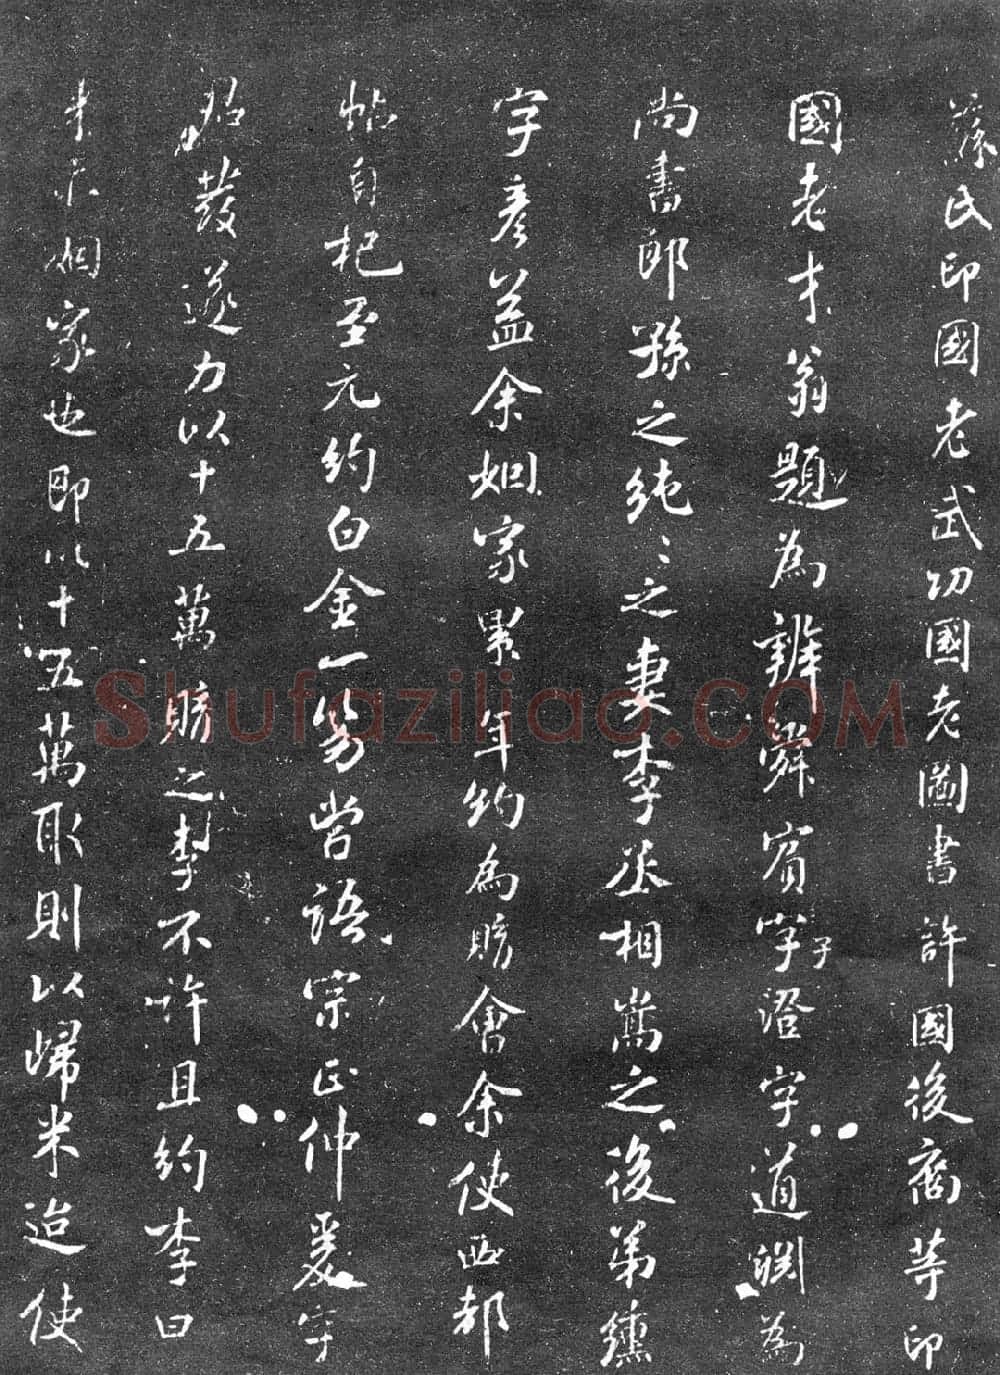 蘇氏印國老武功國老圖書許國後裔等印
國老才翁題為辨舜賓字子澄字道淵為
尚書郎孫之純〻之妻李丞相嵩之後弟鑄
字彥益余姻家累年約為購會余使西都
帖自杞至元約白金一笏嘗語宗正仲爰字
君發遂力以十五萬購之李不許且約李曰
米亦姻家也即以十五萬取則以歸米迨使
Shufaziliao.COM